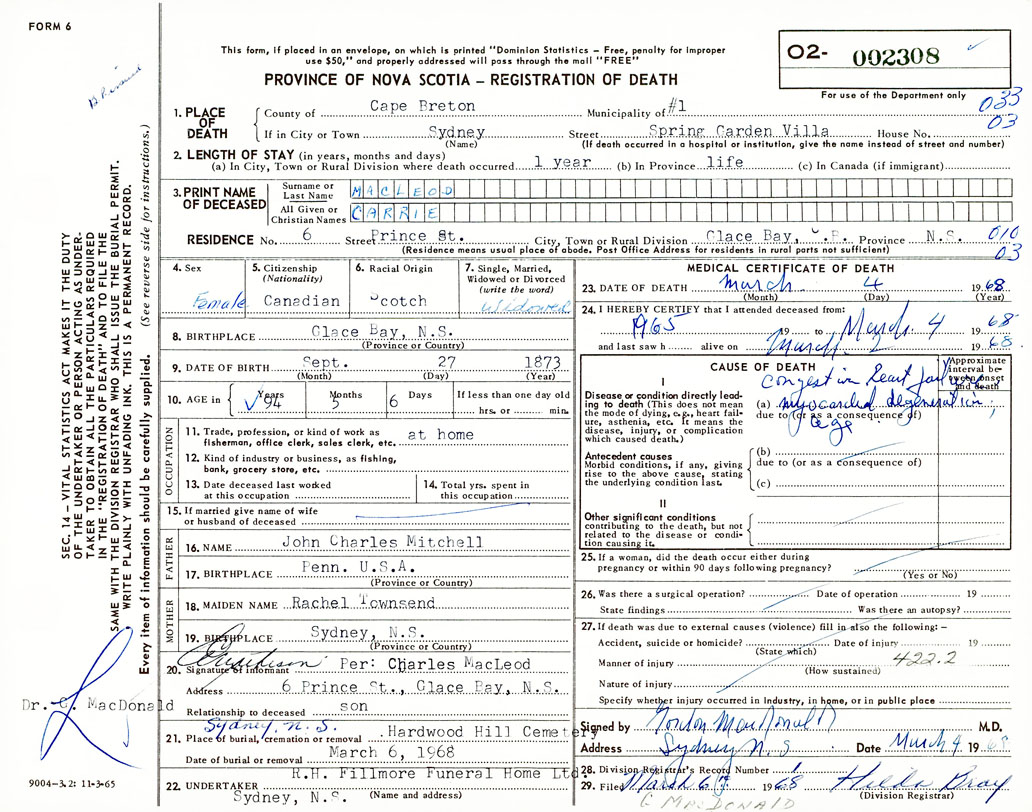 FORM 6
This form, if placed in an envelope, on which is printed "Dominion Statistics – Free, penalty for improper
use $50," and properly addressed will pass through the mail "FREE"
PROVINCE OF NOVA SCOTIA – REGISTRATION OF DEATH
O2- 002308
For use of the Department only
033
03
1. PLACE OF DEATH
County of Cape Breton Municipality of #1
If in City or Town Sydney Street Spring Garden Villa House No.
(Name) (If death occurred in a hospital or institution, give the name instead of street and number)
2. LENGTH OF STAY (in years, months and days)
(a) In City, Town or Rural Division where death occurred 1 year (b) In Province life (c) In Canada (if immigrant)
3. PRINT NAME OF DECEASED
Surname or Last Name MACLEOD
All Given or Christian Names CARRIE
RESIDENCE No. 6 Street Prince St. City, Town or Rural Division Glace Bay, C.B. Province N.S. 010
(Residence means usual place of abode. Post Office Address for residents in rural parts not sufficient) 03
4. Sex Female
5. Citizenship (Nationality) Canadian
6. Racial Origin Scotch
7. Single, Married, Widowed or Divorced (write the word) Widowed
8. BIRTHPLACE Glace Bay, N.S.
(Province or Country)
9. DATE OF BIRTH Sept. 27 1873
(Month) (Day) (Year)
10. AGE in Years 94 Months 5 6 Days If less than one day old
hrs. or min.
OCCUPATION
11. Trade, profession or kind of work as
fisherman, office clerk, sales clerk, etc. at home
12. Kind of industry or business, as fishing,
bank, grocery store, etc.
13. Date deceased last worked
at this occupation
14. Total yrs. spent in
this occupation
15. If married give name of wife
or husband of deceased
FATHER
16. NAME John Charles Mitchell
17. BIRTHPLACE Penn. U.S.A.
(Province or Country)
MOTHER
18. MAIDEN NAME Rachel Townsend
19. BIRTHPLACE Sydney, N.S.
(Province or Country)
20. Signature of informant Per: Charles MacLeod
Address 6 Prince St., Glace Bay, N.S.
Relationship to deceased son
Sydney, N.S.
21. Place of burial, cremation or removal Hardwood Hill Cemetery
Date of burial or removal March 6, 1968
R.H. Fillmore Funeral Home Ltd.
22. UNDERTAKER Sydney, N.S. (Name and address)
MEDICAL CERTIFICATE OF DEATH
23. DATE OF DEATH March 4 1968
(Month) (Day) (Year)
24. I HEREBY CERTIFY that I attended deceased from:
1965 19 to March 4 1968
and last saw h alive on March 2 1968.
CAUSE OF DEATH
Approximate interval between onset and death
I
Disease or condition directly leading to death (This does not
mean the mode of dying, e.g., heart failure, asthenia, etc. It means the
disease, injury, or complication
which caused death.)
Congestive heart failure
(a) myocardial degeneration,
due to (or as a consequence of)
age
Antecedent causes
Morbid conditions, if any, giving
rise to the above cause, stating
the underlying condition last.
(b)
due to (or as a consequence of)
(c)
II
Other significant conditions
contributing to the death, but not
related to the disease or condition causing it.
25. If a woman, did the death occur either during
pregnancy or within 90 days following pregnancy?
(Yes or No)
26. Was there a surgical operation? Date of operation 19
State findings Was there an autopsy?
27. If death was due to external causes (violence) fill in also the following: –
Accident, suicide or homicide? Date of injury 19
(State which)
Manner of injury 422.2
(How sustained)
Nature of injury
Specify whether injury occurred in Industry, in home, or in public place
Signed by Gordon MacDonald M.D.
Address Sydney N S Date March 4 1968
28. Division Registrar's Record Number
29. Filed March 6 1968 Hilda Gray
C MACDONALD (Division Registrar)
SEC. 14 – VITAL STATISTICS ACT MAKES IT THE DUTY
OF THE UNDERTAKER OR PERSON ACTING AS UNDER-
TAKER TO OBTAIN ALL THE PARTICULARS REQUIRED
IN THE "REGISTRATION OF DEATH" AND TO FILE THE
SAME WITH THE DIVISION REGISTRAR WHO SHALL ISSUE THE BURIAL PERMIT.
WRITE PLAINLY WITH UNFADING INK. THIS IS A PERMANENT RECORD.
Every item of information should be carefully supplied. (See reverse side for instructions.)
Dr. G. MacDonald
9004–3.2: 11-3-65